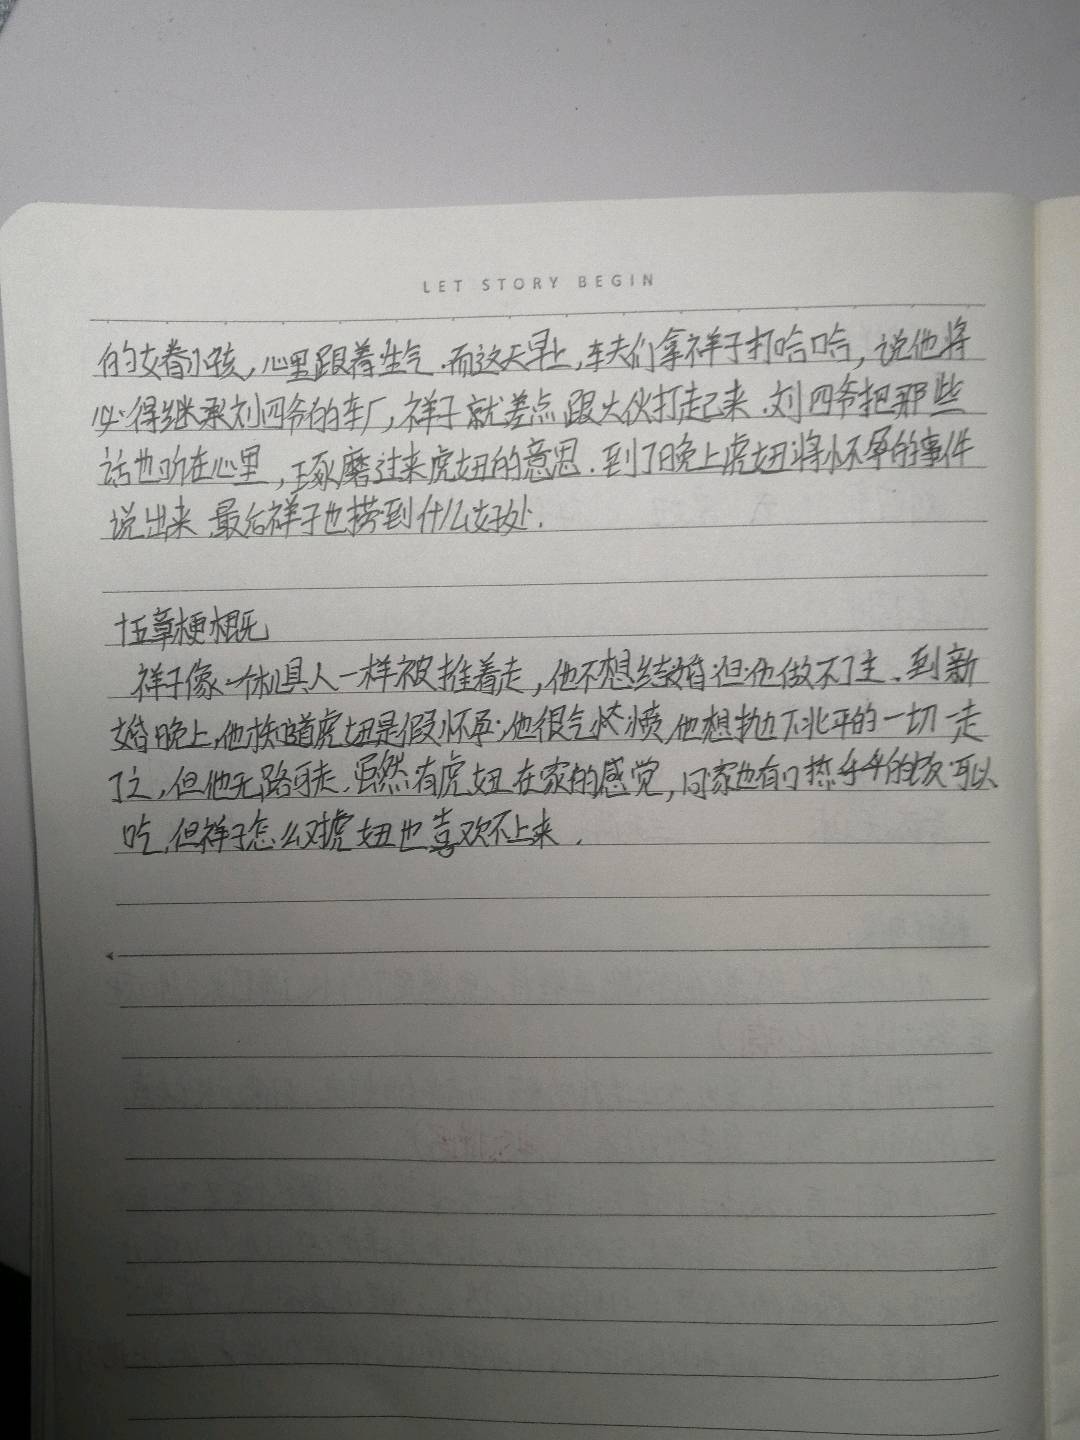 LET STORY BEGIN
的女眷小孩，心里跟着生气．而这天早上，车夫们拿祥子打哈哈，说他将
必得继承刘四爷的车厂，祥子就差点跟大伙打起来．刘四爷把那些
话也叨在心里，琢磨过来虎妞的意思．到了晚上虎妞将怀孕的事件
说出来．最后祥子也捞到什么好处．
十五章梗概
祥子像一机具人一样被推着走，他不想结婚但他做不了主、到新
婚晚上，他知道虎妞是假怀孕；他很气愤，他想抛下北平的一切一走
了之，但他无路可走．虽然有虎妞在家的感觉，回家也有了热的饭可以
吃，但祥子怎么对虎妞也喜欢不上来．